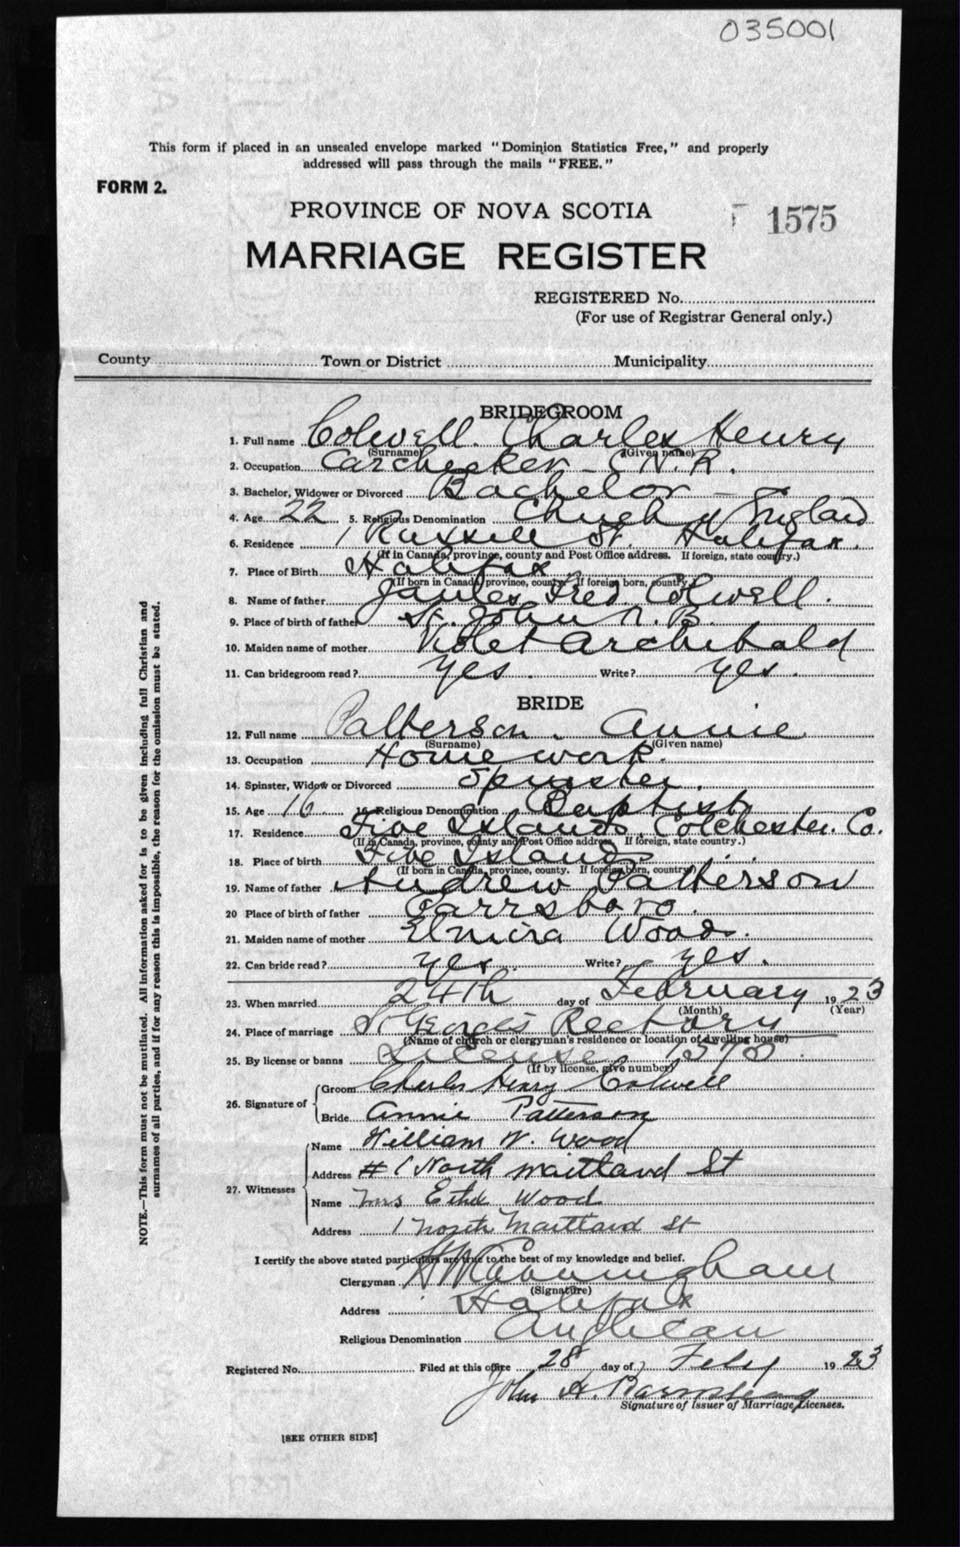 035001
This form if placed in an unsealed envelope marked "Dominion Statistics Free," and properly
addressed will pass through the mails "FREE."
FORM 2.
PROVINCE OF NOVA SCOTIA
1575
MARRIAGE REGISTER
REGISTERED No.
(For use of Registrar General only.)
County Town or District Municipality
BRIDEGROOM
1. Full name Colwell. Charles Henry
(Surname) (Given name)
2. Occupation Carchecker - C.N.R.
3. Bachelor, Widower or Divorced Bachelor -
4. Age 22 5. Religious Denomination Church of England
6. Residence 1 Russell St. Halifax.
(If in Canada, province, county and Post Office address. If foreign, state country.)
7. Place of Birth Halifax
(If born in Canada, province, county. If foreign born, country)
8. Name of father James Fred Colwell.
9. Place of birth of father St. John N.B.
10. Maiden name of mother Violet Archibald
11. Can bridegroom read? yes. Write? yes.
BRIDE
12. Full name Patterson. Annie
(Surname) (Given name)
13. Occupation Home work.
14. Spinster, Widow or Divorced Spinster.
15. Age 16 16. Religious Denomination Baptist
17. Residence Five Islands, Colchester. Co.
(If in Canada, province, county and Post Office address, If foreign, state country.)
18. Place of birth Five Islands
(If born in Canada, province, county. If foreign born, country)
19. Name of father Andrew Patterson
20 Place of birth of father Parrsboro.
21. Maiden name of mother Elmira Wood.
22. Can bride read? yes. Write? yes.
23. When married 24th day of February 1923
(Month) (Year)
24. Place of marriage St Georges Rectory
(Name of church or clergyman's residence or location of dwelling house)
25. By license or banns License 1575
(If by license, give number)
26. Signature of Groom Charles Henry Colwell
Bride Annie Patterson
27. Witnesses Name William N. Wood
Address # 1 North Maitland St
Name Mrs Ethel Wood
Address 1 North Maitland St
I certify the above stated particulars are true to the best of my knowledge and belief.
Clergyman H W Cunningham
(Signature)
Address Halifax
Religious Denomination Anglican
Registered No. Filed at this office 28 day of Feby 1923
John A.
Signature of Issuer of Marriage Licenses.
[SEE OTHER SIDE]
NOTE.—This form must not be mutilated. All information asked for is to be given including full Christian and
surnames of all parties, and if for any reason this is impossible, the reason for the omission must be stated.